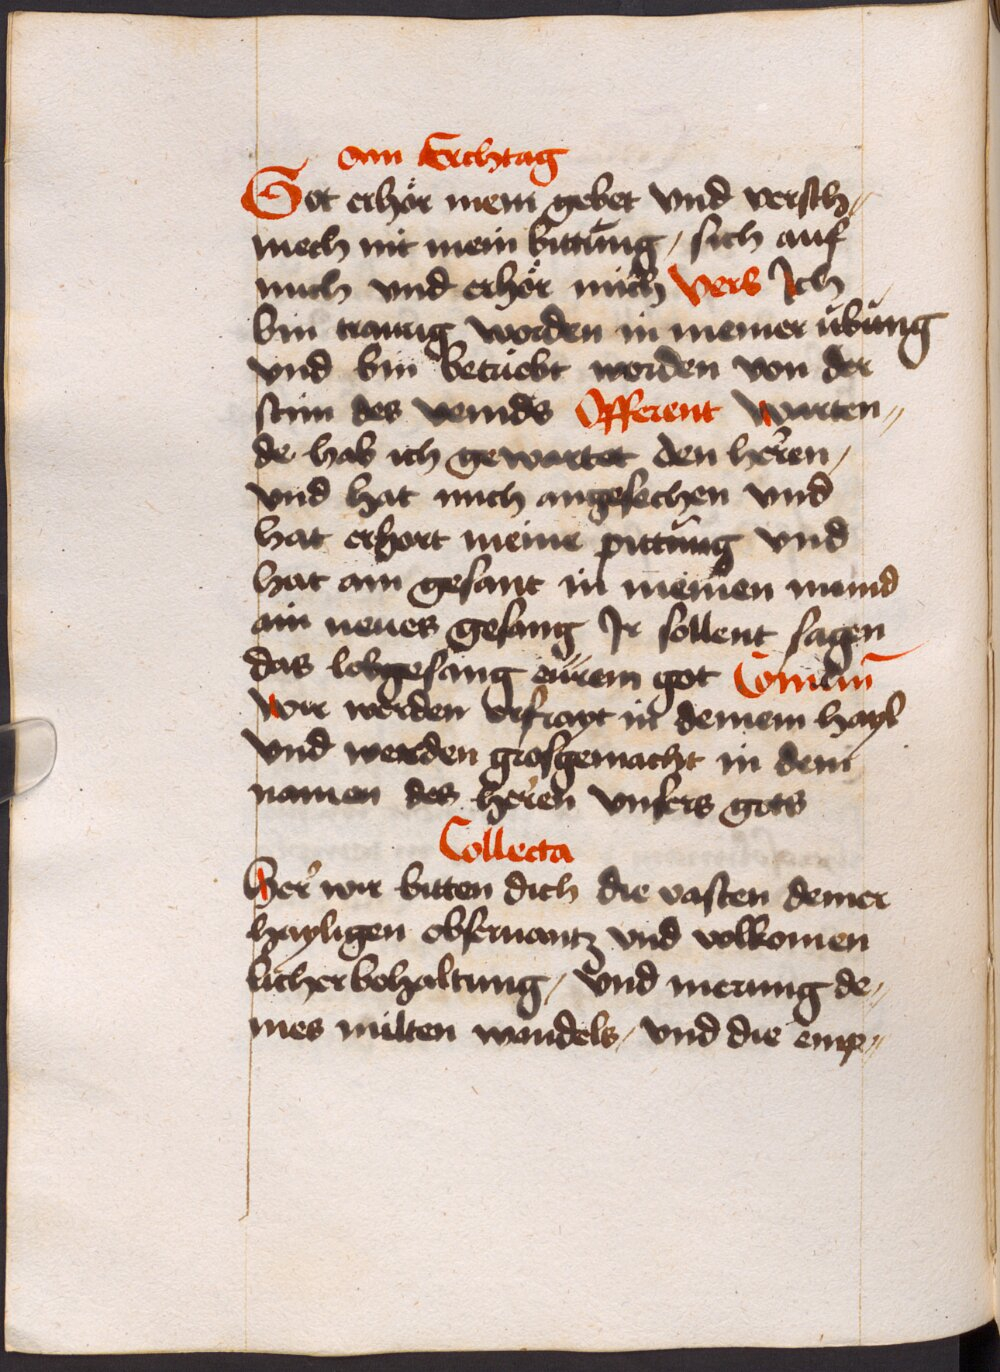 am Erchtag
Got erhör mein gebet vnd versch„
mech nit mein bittůng / sich auf
mich vnd erhör mich Vers Ich
bin traurig worden in meiner übůng
vnd bin betrüebt worden von der
stim des veinds Offerent Warten„
de hab ich gewartet den heren /
vnd hat mich angesechen vnd
hat erhort meine pittůng vnd
hat ain gesant in meinen mund
ain neues gesang Ir sollent sagen
das lobgesang eürem got Comūn
Wir werden erfrayt in deinem hayl
vnd werden grosgemacht in dem
namen des heren vnsers gots
Collecta
Her wir bitten dich die vasten deiner
hayligen obseruantz vnd volkomen
licher behaltung / vnd merung de„
ines milten wandels / vnd die emp„